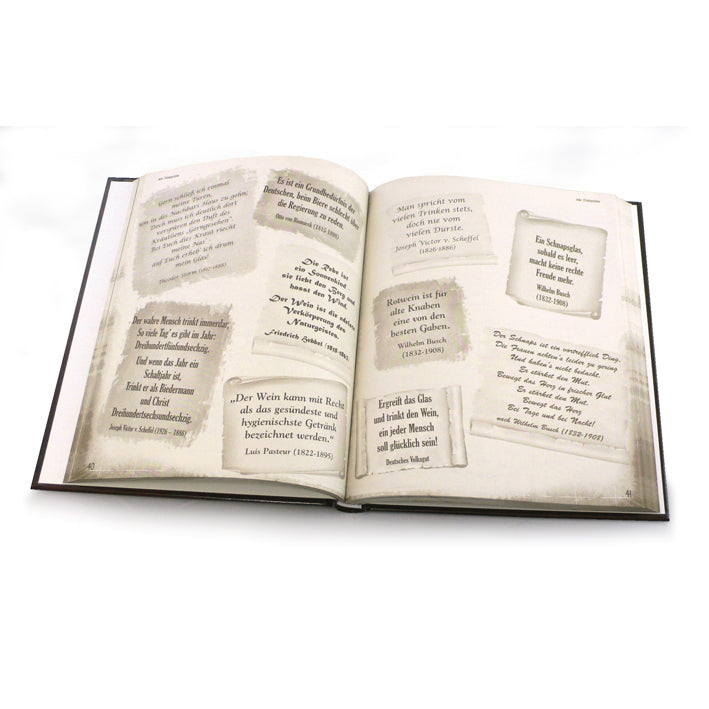 Gern schließ ich einmal
meine Türen,
um in des Nachbars Haus zu gehn;
Doch muss ich deutlich dort
verspüren den Duft des
Kräutleins „Gerngesehen".
Bei Euch dies Kraut riecht
meine Nas'
auf Euch erheb' ich drum
mein Glas!
Theodor Storm (1817-1888)
Es ist ein Grundbedürfnis der
Deutschen, beim Biere schlecht über
die Regierung zu reden.
Otto von Bismarck (1815-1898)
Die Rebe ist
ein Sonnenkind.
sie liebt den Berg und
hasst den Wind.
Der Wein ist die edelste
Verkörperung des
Naturgeistes.
Friedrich Hebbel (1813-1863)
Der wahre Mensch trinkt immerdar,
So viele Tag' es gibt im Jahr:
Dreihundertfünfundsechzig.
Und wenn das Jahr ein
Schaltjahr ist,
Trinkt er als Biedermann
und Christ
Dreihundertsechsundsechzig.
Joseph Victor v. Scheffel (1826 – 1886)
„Der Wein kann mit Recht
als das gesündeste und
hygienischste Getränk
bezeichnet werden."
Luis Pasteur (1822-1895)
40
Man spricht vom
vielen Trinken stets,
doch nie vom
vielen Durste.
Joseph Victor v. Scheffel
(1826-1886)
Ein Schnapsglas,
sobald es leer,
macht keine rechte
Freude mehr.
Wilhelm Busch
(1832-1908)
Rotwein ist für
alte Knaben
eine von den
besten Gaben.
Wilhelm Busch
(1832-1908)
Der Schnaps ist ein vortrefflich Ding.
Die Frauen achten's leider zu gering
Und haben's nicht bedacht.
Er stärket den Mut.
Bewegt das Herz in frischer Glut
Er stärket den Mut.
Bewegt das Herz
Bei Tage und bei Nacht!
nach Wilhelm Busch (1832-1908)
Ergreift das Glas
und trinkt den Wein,
ein jeder Mensch
soll glücklich sein!
Deutsches Volksgut
41